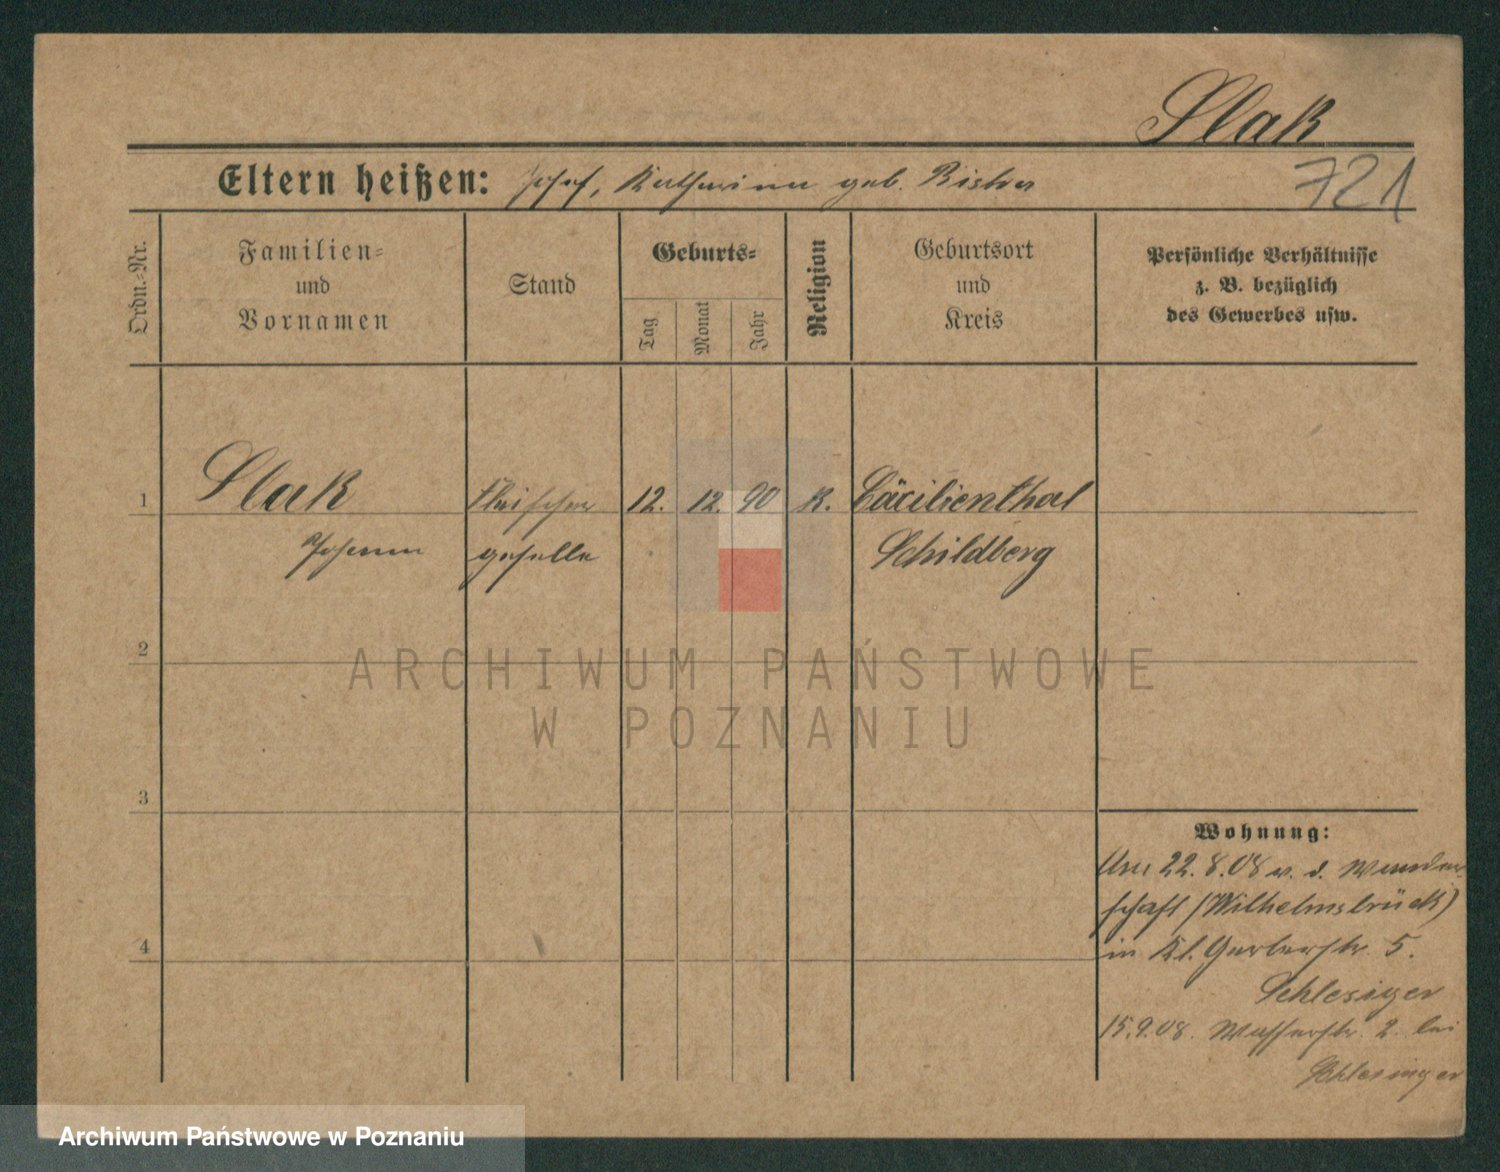 Slak
Eltern heißen: Josef, Katharina geb.
721
Ordn.-Nr.
Familien-
und
Vornamen
Stand
Geburts-
Tag
Monat
Jahr
Religion
Geburtsort
und
Kreis
Persönliche Verhältnisse
z. B. bezüglich
des Gewerbes usw.
1
Slak
Fleischer
12. 12. 90
K.
Cäcilienthal
Johann
geselle
Schildberg
2
ARCHIWUM PAŃSTWOWE
W POZNANIU
3
4
Wohnung:
22.8.08 v. d. Wander
schaft (Wilhelmsbrück)
in Kl. Gerberstr. 5.
Schlesiger
15.9.08. Wasserstr. 2. bei
Schlesinger
Archiwum Państwowe w Poznaniu